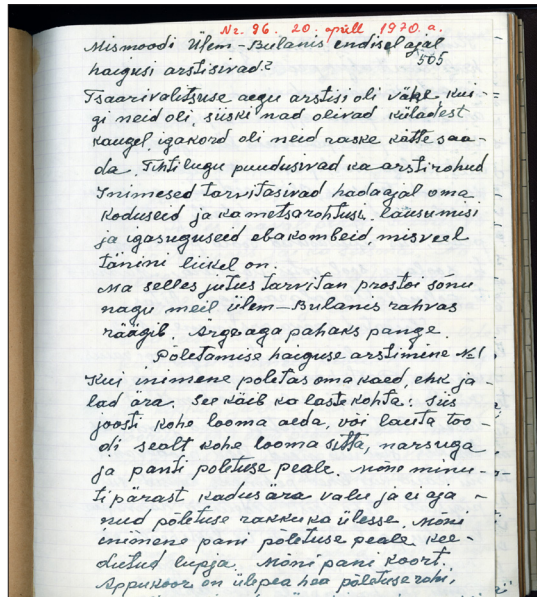 Nr. 96. 20. aprill 1970. a.
Mismoodi Ülem-Bulanis endisel ajal
505
haigusi arstisivad?
Tsaarivalitsuse aegu arstisi oli vähe, kui-
gi neid oli, siiski nad olivad küladest
kaugel, igakord oli neid raske kätte saa-
da. Tihtilugu puudusivad ka arstirohud
Inimesed tarvitasivad hädaajal oma
koduseid ja ka metsarohtusi, lausumisi
ja igasuguseid ebakombeid, mis veel
tänini liikel on.
Ma selles jutus tarvitan prostoi sõnu
nagu meil ülem-Bulanis rahvas
räägib. Argeaga pahaks pange.
Põletamise haiguse arstimine №1
Kui inimene põletas oma käed, ehk ja-
lad ära. See käib ka laste kohta: siis
joosti kohe looma aeda, või lauta too-
di sealt kohe looma sitta, narsuga
ja panti põlituse peale. Mõne minu-
ti pärast kadus ära valu ja ei aja-
nud põletuse rakku ka ülesse. Mõni
inimene pani põletuse peale kee-
dutud lupja. Mõni pani koort.
Appukoor on ülepea hea põletuse rohi,